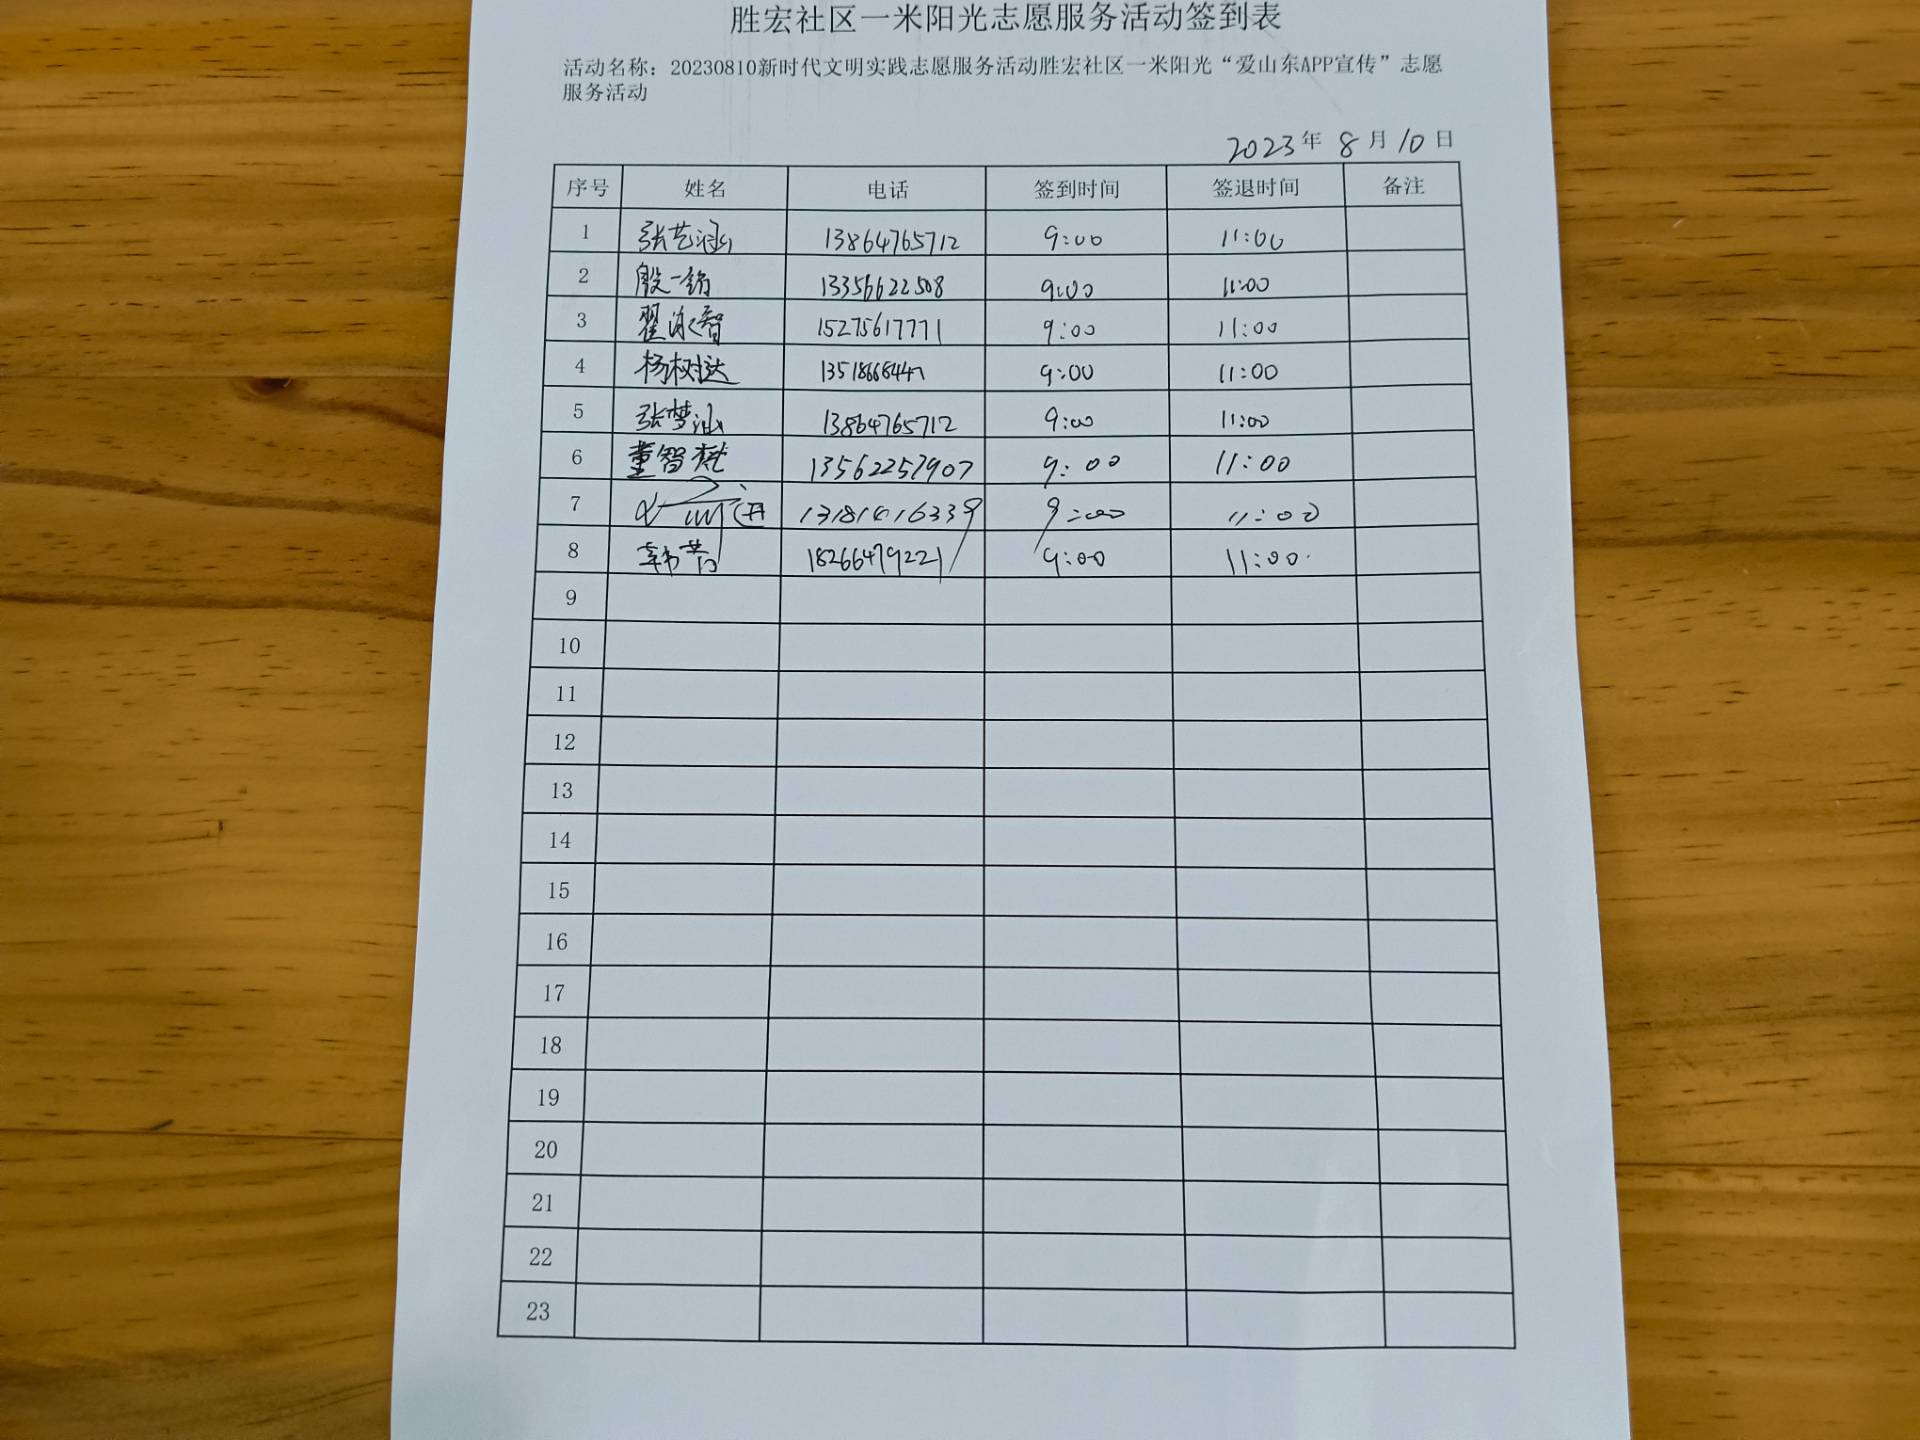 胜宏社区一米阳光志愿服务活动签到表
活动名称：20230810新时代文明实践志愿服务活动胜宏社区一米阳光“爱山东APP宣传”志愿
服务活动
2023年 8月10日
序号 姓名 电话 签到时间 签退时间 备注
1 张艺涵 13864765712 9:00 11:00
2 殷一铭 13356622508 9:00 11:00
3 翟泳智 15275617771 9:00 11:00
4 杨树达 9:00 11:00
5 张梦涵 13864765712 9:00 11:00
6 董智梵 13562257907 9:00 11:00
7 9:00 11:00
8 韩菁 18266479221 9:00 11:00
9
10
11
12
13
14
15
16
17
18
19
20
21
22
23